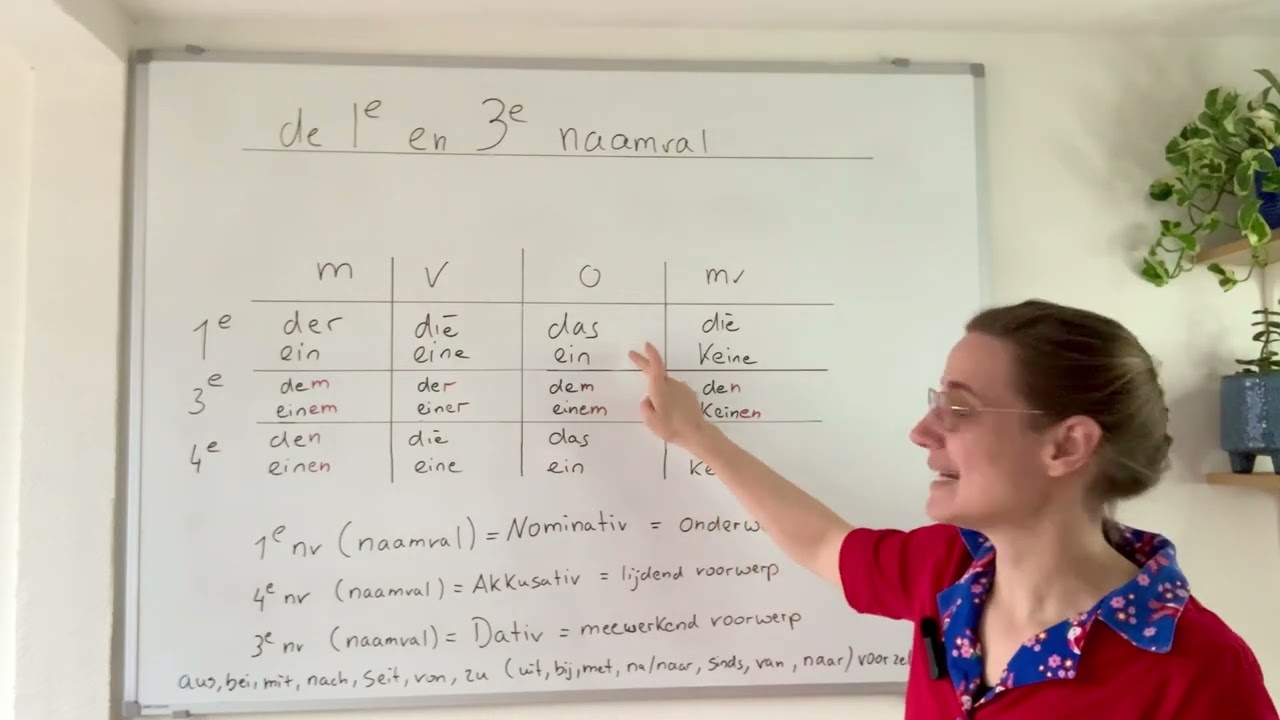 de 1e en 3e naamval
m v o mv
1e der die das die
ein eine ein keine
3e dem der dem den
einem einer einem keinen
4e den die das
einen eine ein
1e nv (naamval) = Nominativ =
4e nv (naamval) = Akkusativ = lijdend voorwerp
3e nv (naamval) = Dativ = meewerkend voorwerp
aus, bei, mit, nach, seit, von, zu (uit, bij, met, na/naar, sinds, van, naar)